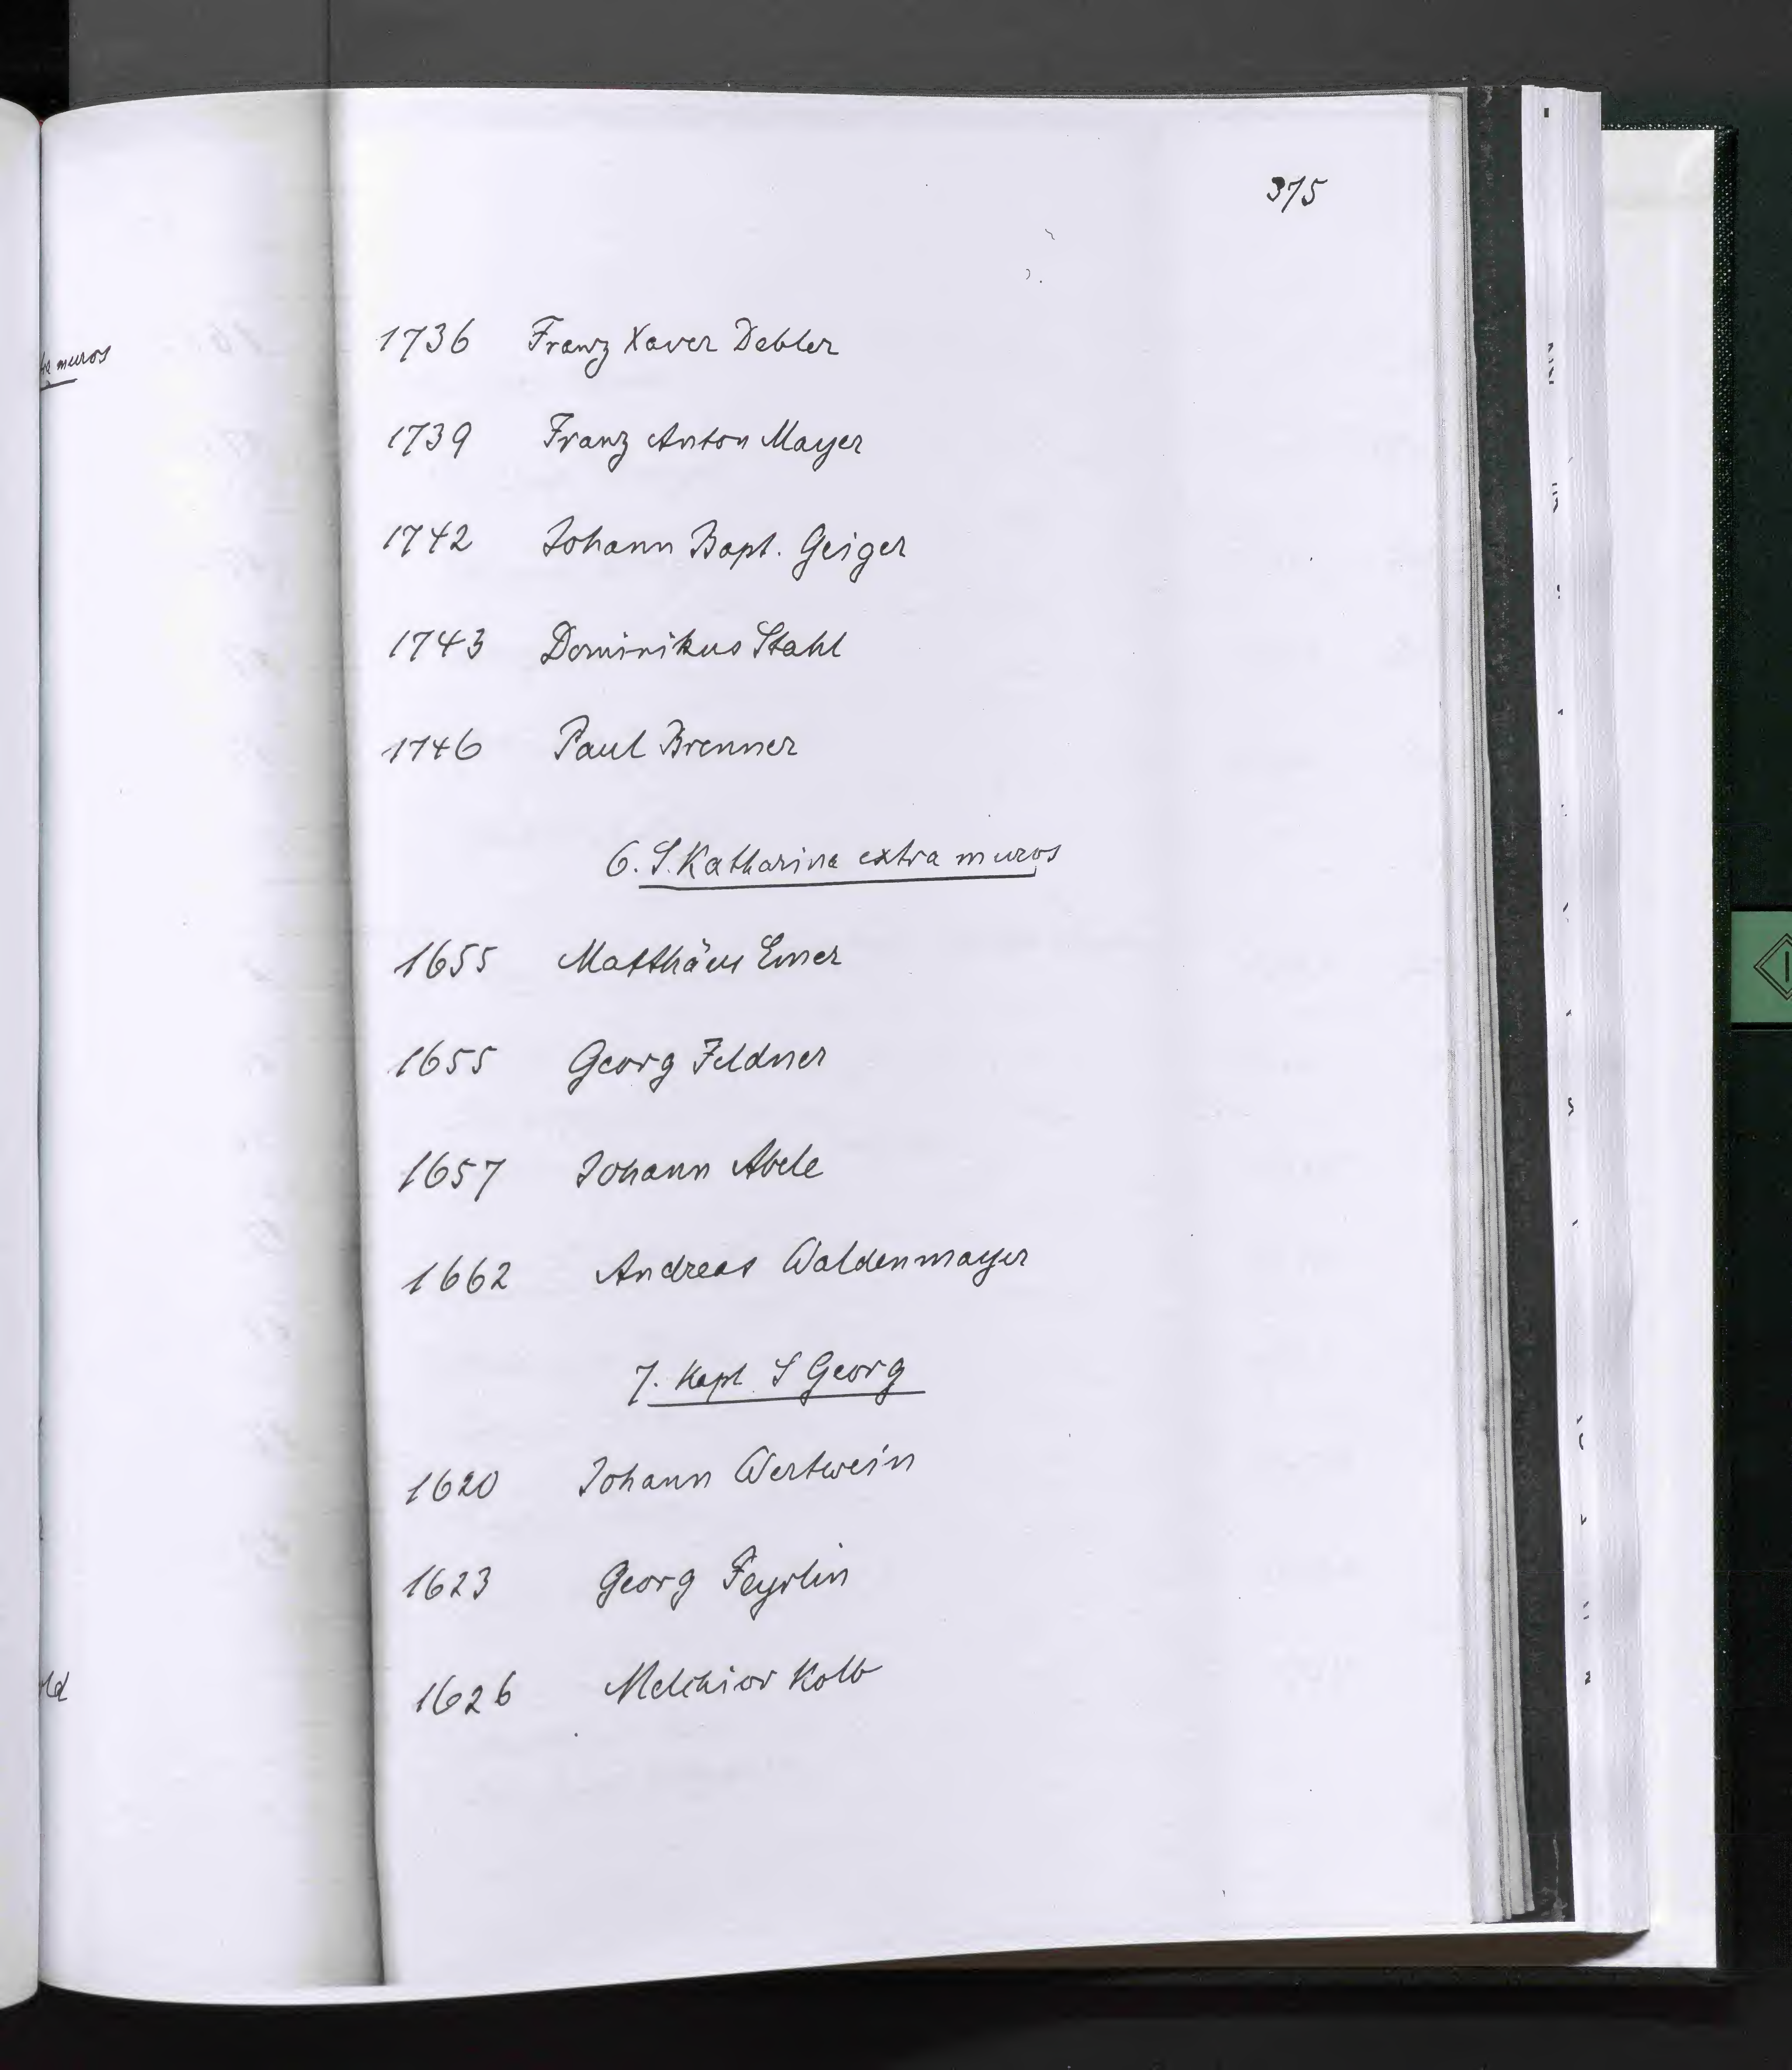 muros
375
1736 Franz Xaver Debler
1739 Franz Anton Mayer
1742 Johann Bapt. Geiger
1743 Dominikus Stahl
1746 Paul Brenner
6. S. Katharina extra muros
1655 Matthäus Emer
1655 Georg Feldner
1657 Johann Abele
1662 Andreas Waldenmayer
7. Kapl S Georg
1620 Johann Wertwein
1623 Georg Feyrlin
1626 Melchior Kolb